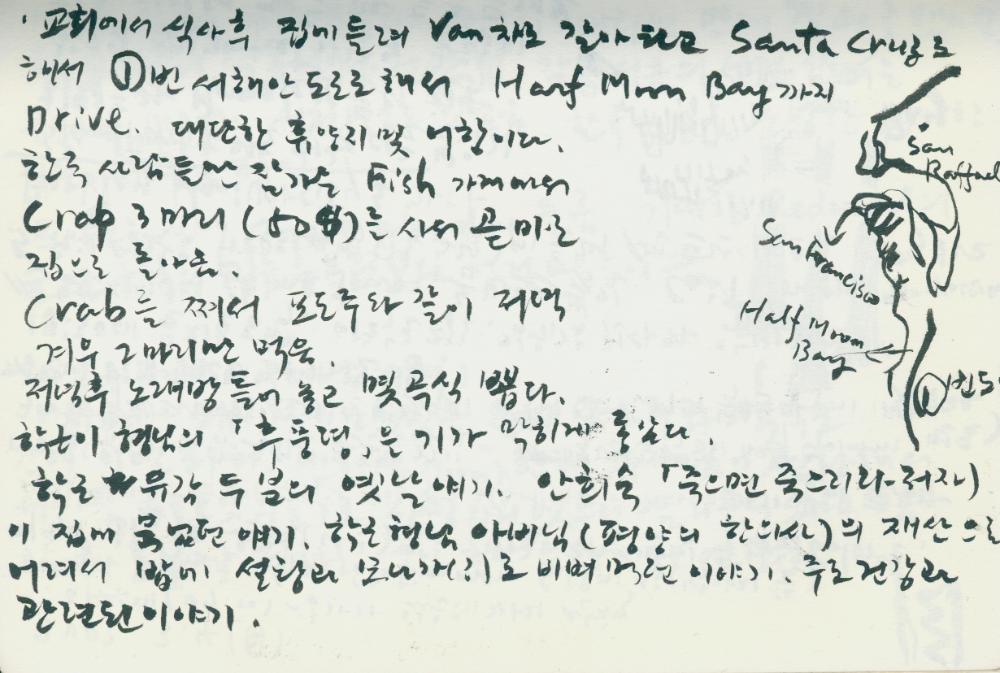 · 교회에서 식사후 집에 들려 Van차로 갈아 타고 Santa Cruz로
해서 ①번 서해안 도로로 해서 Half Moon Bay까지
Drive. 대단한 휴양지 및 어항이다.
한국 사람들만 잘가는 Fish 가게에서
Crab 3마리 (50$)를 사서 곧바로
집으로 돌아옴.
Crab를 쪄서 포도주와 같이 저녁
겨우 2마리만 먹음.
저녁후 노래방 틀어 놓고 몇곡식 뽑다.
형님의 「 」은 기가 막히게 좋았다.
두분의 옛날얘기. 안희숙 「죽으면 죽으리라-저자)
이 집에 얘기. 형님 아버님(평양의 한의사)의 재산으로
어려서 밥에 설탕과 비벼 먹던 이야기. 주로 건강과
관련된 이야기.
San
Raffael
San Francisco
Half Moon
Bay
①번도